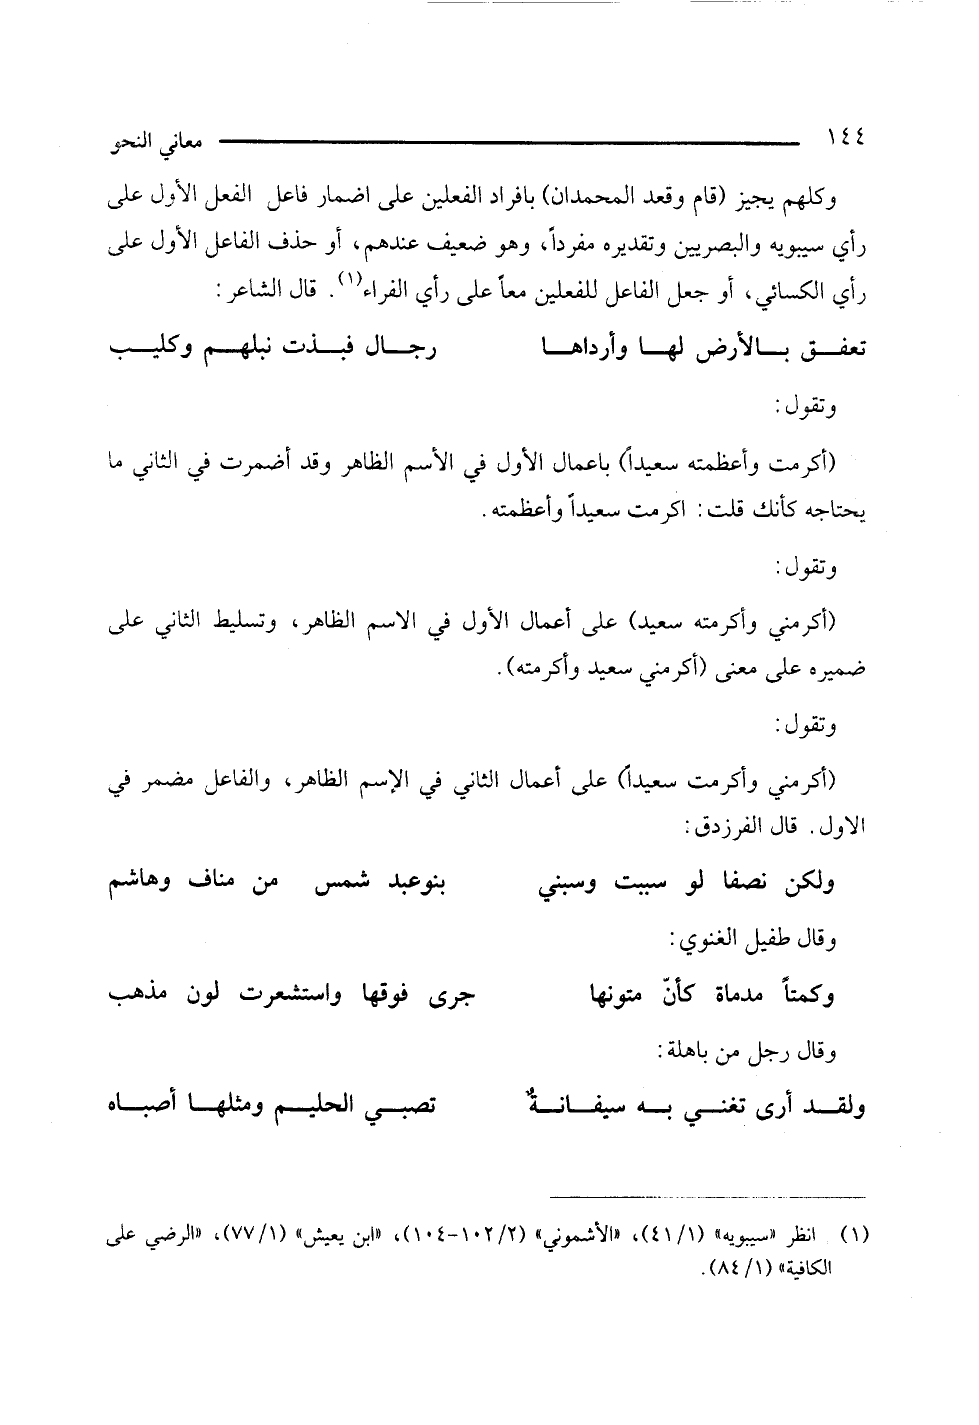 ١٤٤ معاني النحو
وكلهم يجيز (قام وقعد المحمدان) بافراد الفعلين على اضمار فاعل الفعل الأول على
رأي سيبويه والبصريين وتقديره مفرداً، وهو ضعيف عندهم، أو حذف الفاعل الأول على
رأي الكسائي، أو جعل الفاعل للفعلين معاً على رأي الفراء(١). قال الشاعر:
تعفـــق بـــالأرض لهـــا وأرداهـــا رجـــال فبـــذت نبلهـــم وكليـــب
وتقول:
(أكرمت وأعظمته سعيداً) باعمال الأول في الأسم الظاهر وقد أضمرت في الثاني ما
يحتاجه كأنك قلت: اكرمت سعيداً وأعظمته.
وتقول:
(أكرمني وأكرمته سعيد) على أعمال الأول في الاسم الظاهر، وتسليط الثاني على
ضميره على معنى (أكرمني سعيد وأكرمته).
وتقول:
(أكرمني وأكرمت سعيداً) على أعمال الثاني في الإسم الظاهر، والفاعل مضمر في
الاول. قال الفرزدق:
ولكن نصفا لو سببت وسبني بنوعبد شمس من مناف وهاشم
وقال طفيل الغنوي:
وكمتاً مدماة كأنّ متونها جرى فوقها واستشعرت لون مذهب
وقال رجل من باهلة:
ولقـــد أرى تغنـــي بـــه سيفـــانـــةٌ تصبـــي الحليـــم ومثلهـــا أصبـــاه
(١) انظر «سيبويه» (٤١/١)، «الأشموني» (١٠٢/٢-١٠٤)، «ابن يعيش» (٧٧/١)، «الرضي على
الكافية» (٨٤/١).